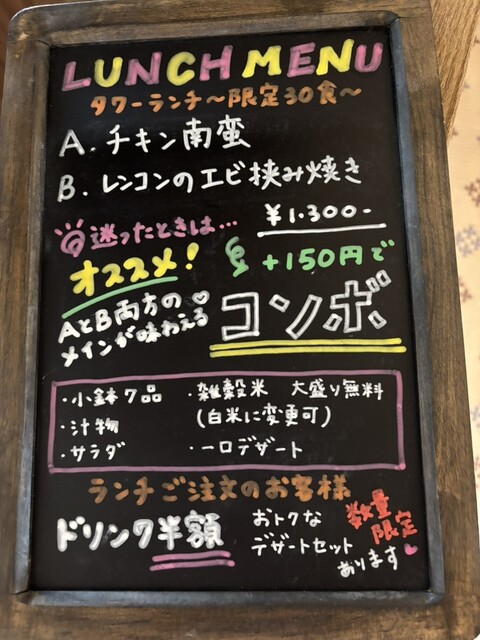 LUNCH MENU
タワーランチ〜限定30食〜
A. チキン南蛮
B. レンコンのエビ挟み焼き
¥1.300-
迷ったときは…
オススメ!
+150円で
AとB両方の♡
メインが味わえる
コンボ
・小鉢7品
・汁物
・サラダ
・雑穀米 大盛り無料
(白米に変更可)
・一口デザート
ランチご注文のお客様
ドリンク半額
おトクな
デザートセット
あります♥
数量
限定